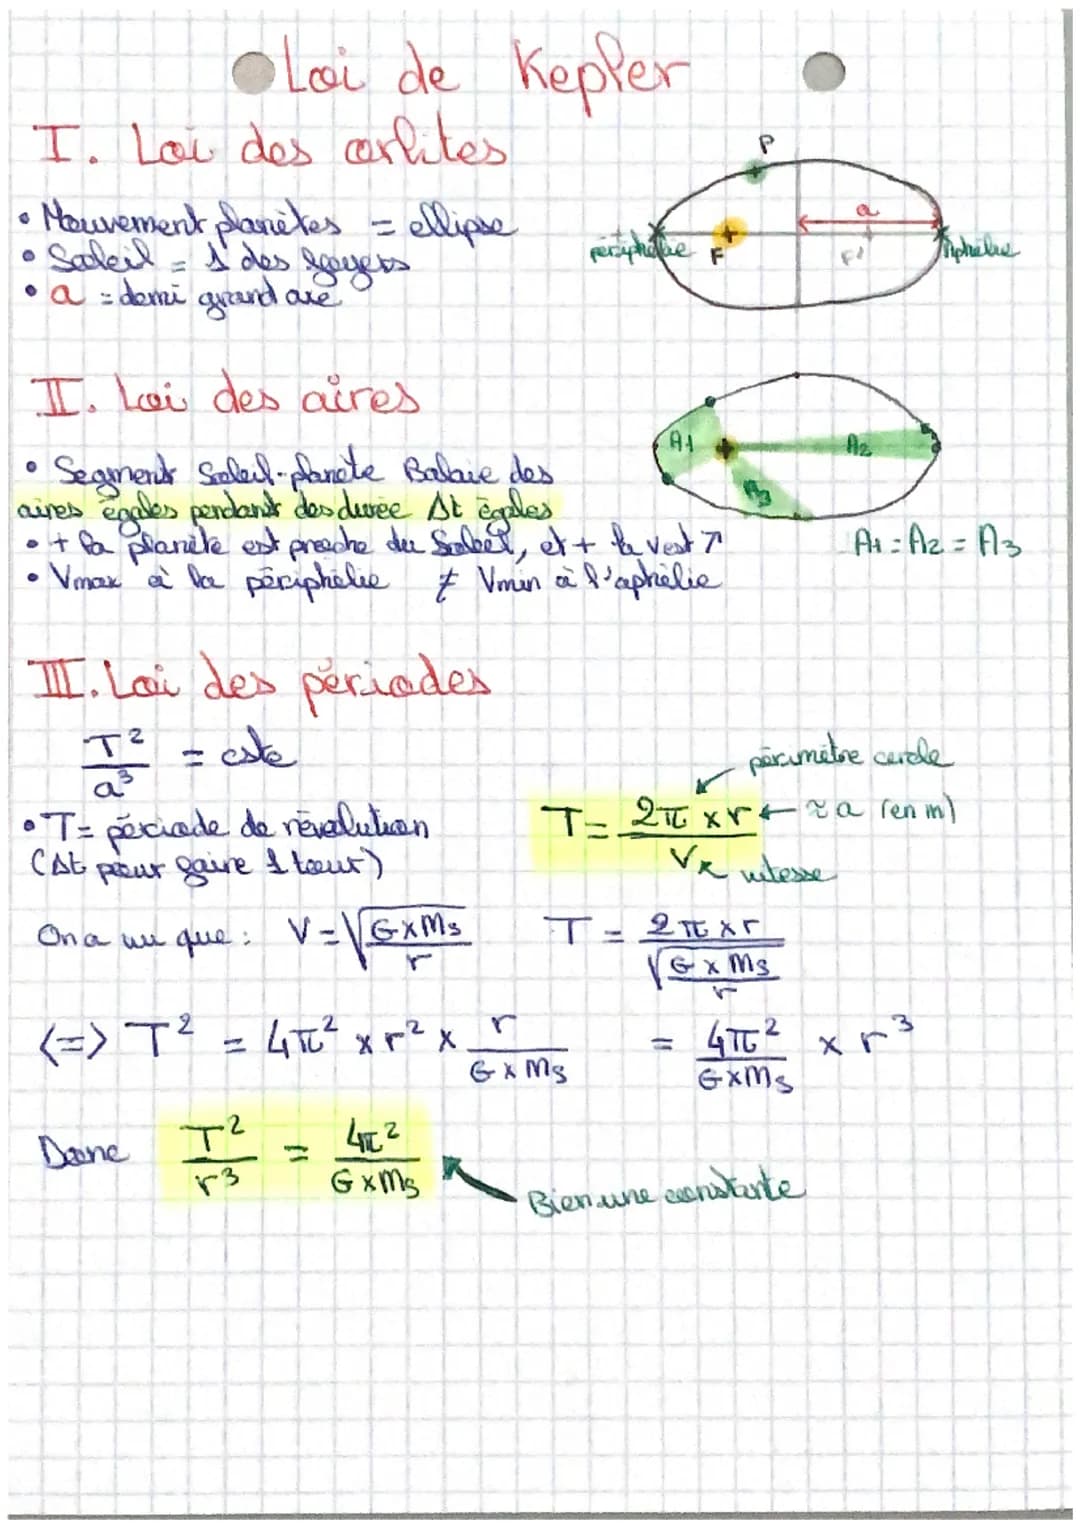 Loi de Kepler
I. Loi des orbites
• Mouvement planètes = ellipse
• Soleil = 1 des foyers
• a = demi grand axe
P
a
périphélie
F
F'
Aphélie
II. Loi des aires
• Segment Soleil-planète Balaie des
aires égales pendant des durée Δt égales
• + la planète est proche du Soleil, et + la v est ↗
• Vmax à la périphélie ≠ Vmin à l'aphélie
A1
A2
A3
A1 = A2 = A3
III. Loi des périodes
T²/a³ = cste
• T = période de révolution
(Δt pour faire 1 tour)
périmètre cercle
T = 2π × r / V ← ≈ a (en m)
vitesse
On a vu que : V = √(G×Ms/r) T = 2π×r / √(G×Ms/r)
<=> T² = 4π² × r² × r/(G×Ms) = 4π²/(G×Ms) × r³
Donc T²/r³ = 4π²/(G×Ms)
Bien une constante